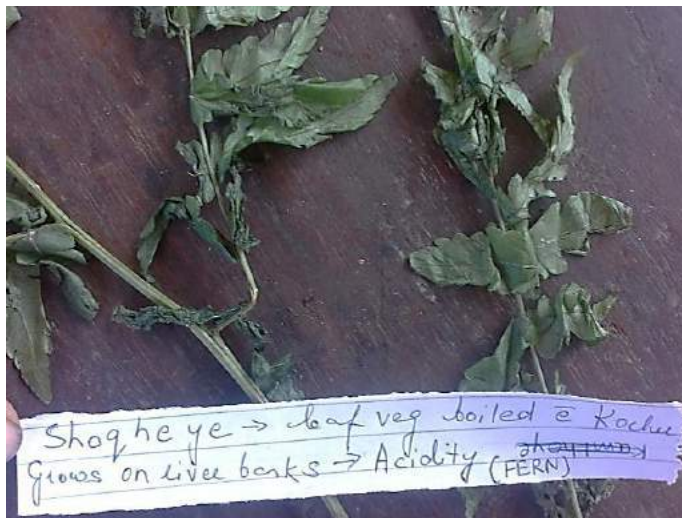 Shogheye → leaf veg boiled ē Kochu
Grows on river banks → Acidity (FERN)